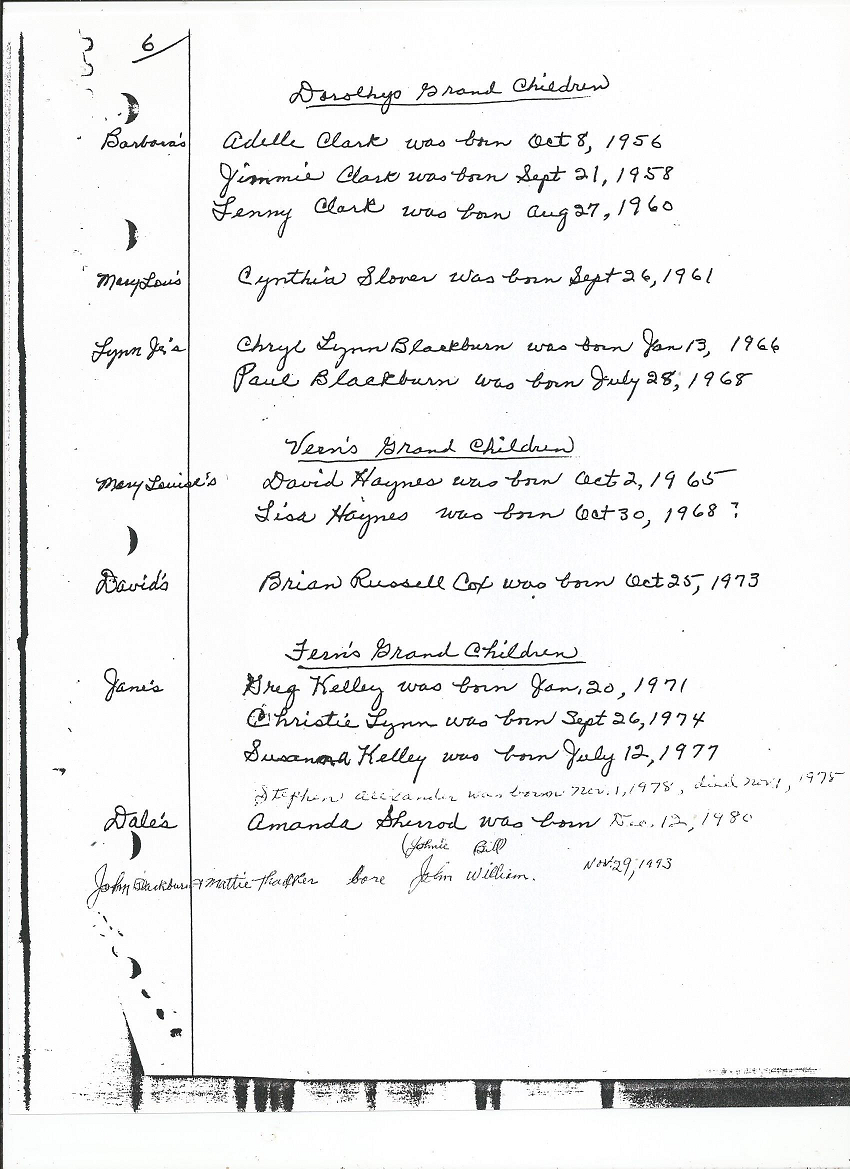 6
Dorothys Grand Children
Barbara's Adelle Clark was born Oct 8, 1956
Jimmie Clark was born Sept 21, 1958
Lenny Clark was born Aug 27, 1960
Mary Lou's Cynthia Slover was born Sept 26, 1961
Lynn Jr's Chryl Lynn Blackburn was born Jan 13, 1966
Paul Blackburn was born July 28, 1968
Vern's Grand Children
Mary Louise's David Haynes was born Oct 2, 1965
Lisa Haynes was born Oct 30, 1968 ?
David's Brian Russell Cox was born Oct 25, 1973
Fern's Grand Children
Jane's Greg Kelley was born Jan. 20, 1971
Christie Lynn was born Sept 26, 1974
Susanna Kelley was born July 12, 1977
Stephen Alexander was born Nov. 1, 1978, died Nov 1, 1978
Dale's Amanda Sherrod was born Dec. 12, 1980
(Johnie Bill
John Blackburn + Mattie Thacker bore John William. Nov 29, 1993